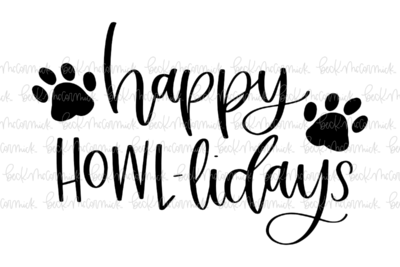 happy
HOWL-lidays